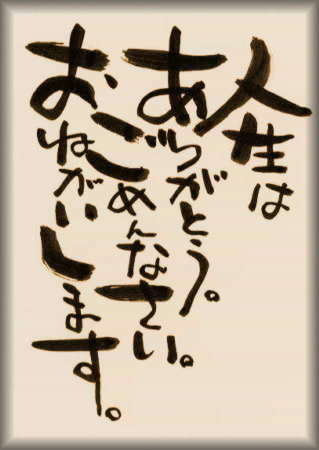 人生は
ありがとう。
ごめんなさい。
おねがいします。